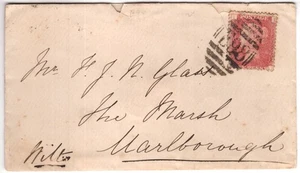 Mr H. J. N. Glass
The Marsh
Marlborough
Wilts